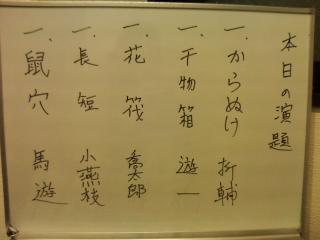 本日の演題
一、からぬけ 折輔
一、干物箱 遊一
一、花筏 喬太郎
一、長短 小燕枝
一、鼠穴 馬遊